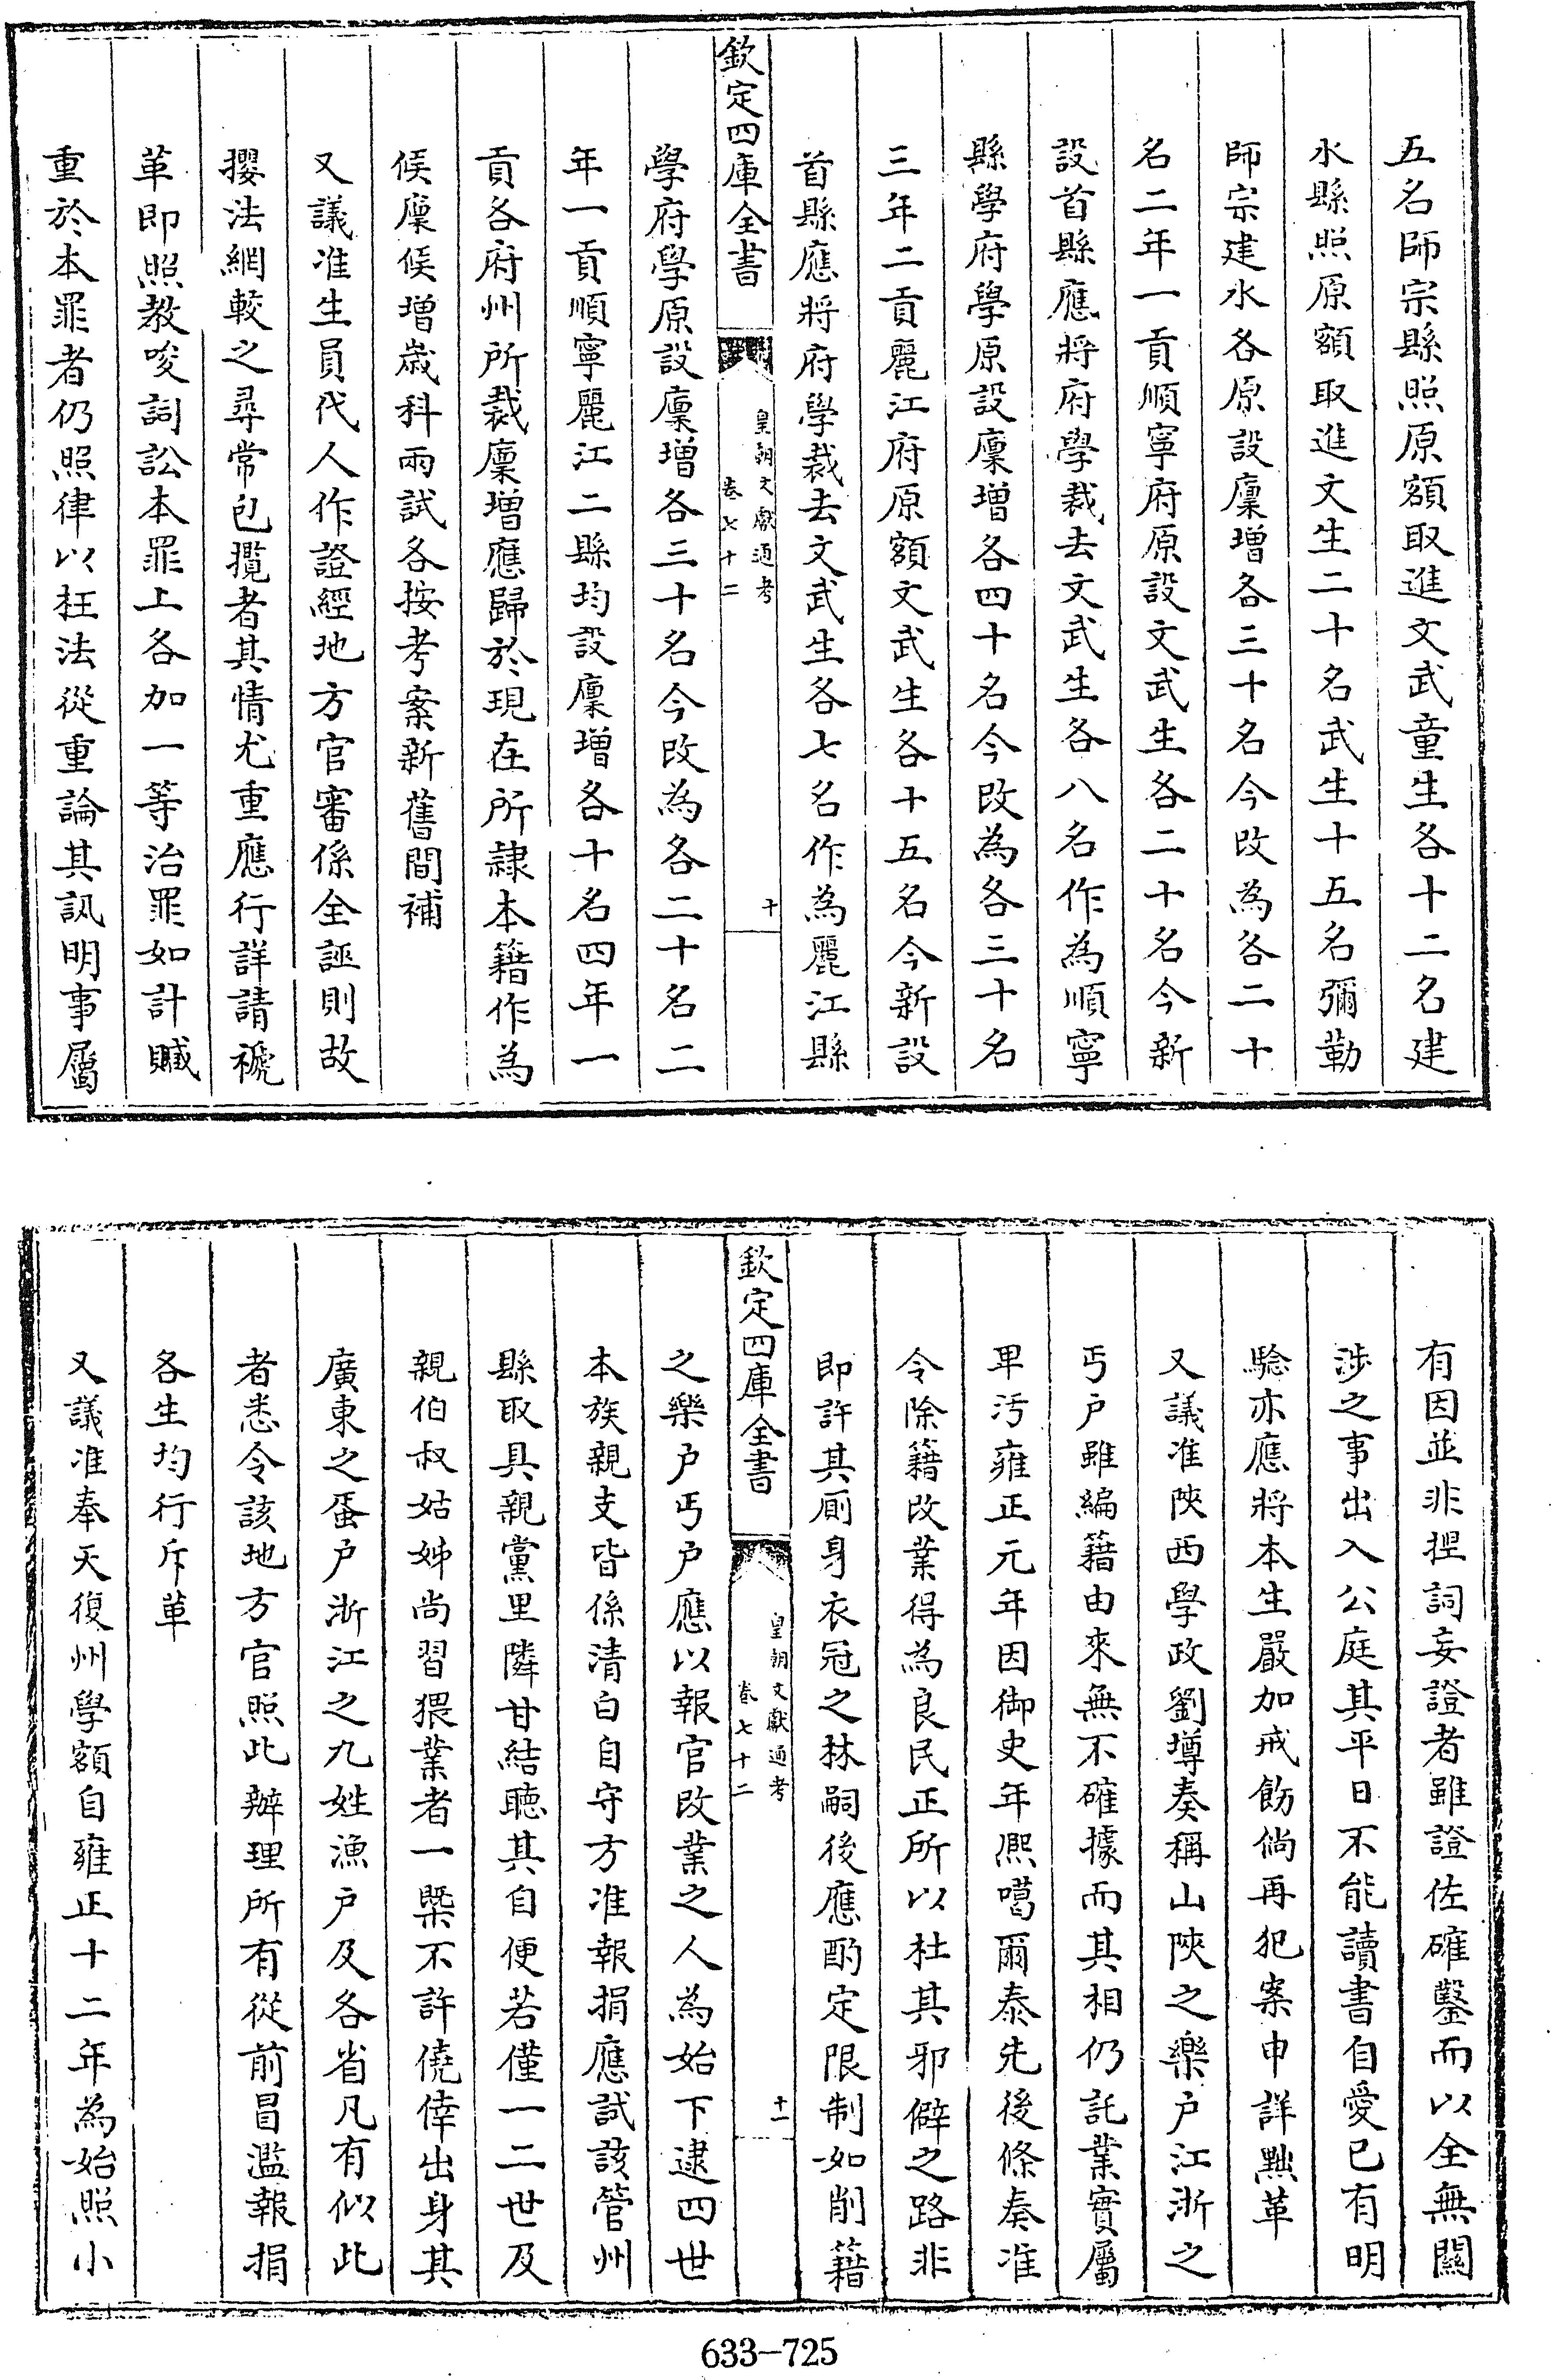 五名師宗縣照原額取進文武童生各十二名建
水縣照原額取進文生二十名武生十五名彌勒
師宗建水各原設廩增各三十名今改為各二十
名二年一貢順寧府原設文武生各二十名今新
設首縣應將府學裁去文武生各八名作為順寧
縣學府學原設廩增各四十名今改為各三十名
三年二貢麗江府原額文武生各十五名今新設
首縣應將府學裁去文武生各七名作為麗江縣
欽定四庫全書
皇朝文獻通考
卷七十二
十
學府學原設廩增各三十名今改為各二十名二
年一貢順寧麗江二縣均設廩增各十名四年一
貢各府州所裁廩增應歸於現在所隸本籍作為
候廩候增歲科兩試各按考案新舊間補
又議准生員代人作證經地方官審係全誣則故
攖法網較之尋常包攬者其情尤重應行詳請褫
革即照教唆詞訟本罪上各加一等治罪如計贓
重於本罪者仍照律以枉法從重論其訊明事屬
有因並非捏詞妄證者雖證佐確鑿而以全無關
涉之事出入公庭其平日不能讀書自愛已有明
驗亦應將本生嚴加戒飭倘再犯案申詳黜革
又議准陝西學政劉墫奏稱山陝之樂户江浙之
丐户雖編籍由來無不確據而其相仍託業實屬
卑汚雍正元年因御史年熙噶爾泰先後條奏准
令除籍改業得為良民正所以杜其邪僻之路非
即許其廁身衣冠之林嗣後應酌定限制如削籍
欽定四庫全書
皇朝文獻通考
卷七十二
十一
之樂户丐户應以報官改業之人為始下逮四世
本族親支皆係清白自守方准報捐應試該管州
縣取具親黨里隣甘結聽其自便若僅一二世及
親伯叔姑姊尚習猥業者一槩不許僥倖出身其
廣東之蛋户浙江之九姓漁户及各省凡有似此
者悉令該地方官照此辦理所有從前冒濫報捐
各生均行斥革
又議准奉天復州學額自雍正十二年為始照小
633-725